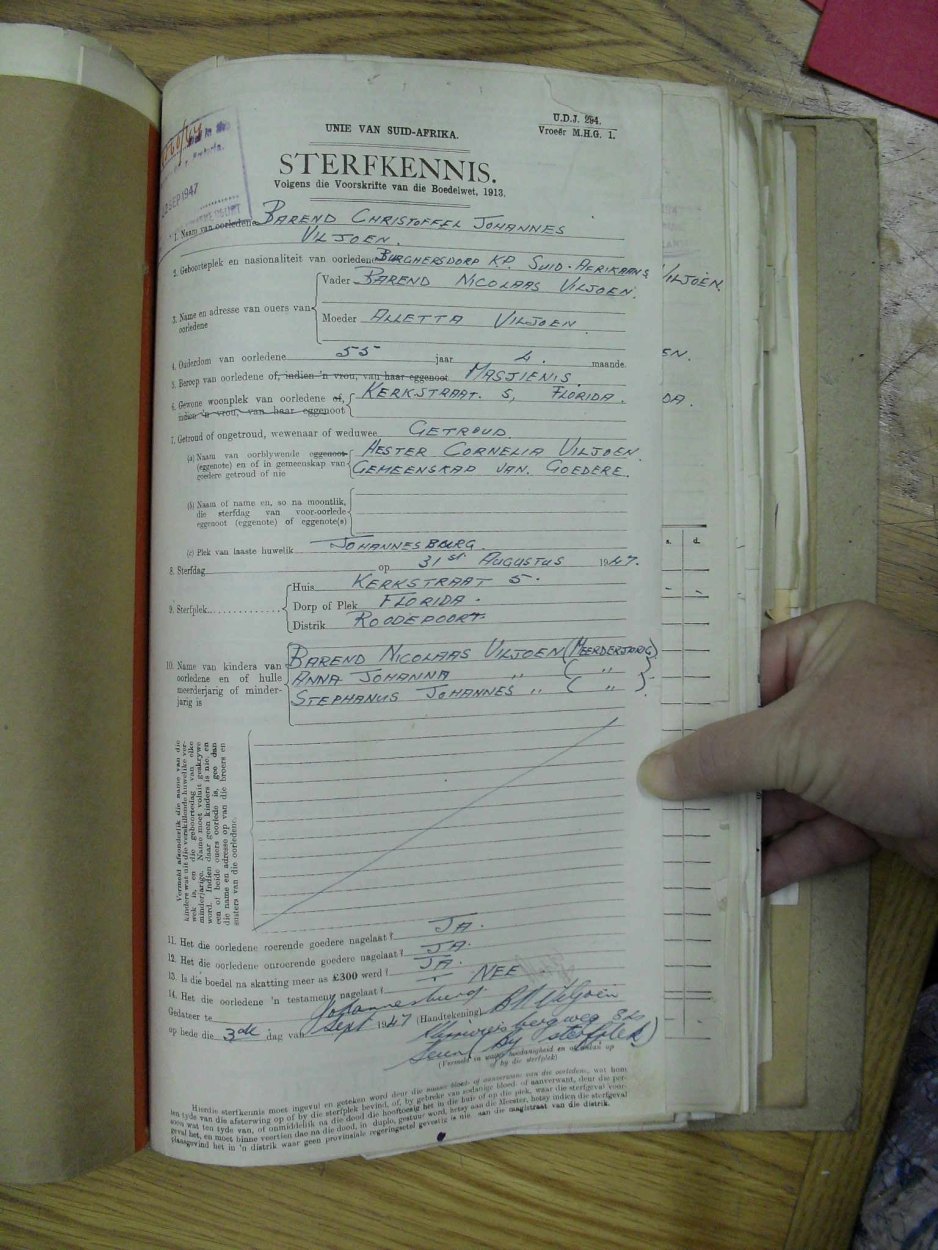 UNIE VAN SUID-AFRIKA.
U.D.J. 294.
Vroeër M.H.G. 1.
STERFKENNIS.
Volgens die Voorskrifte van die Boedelwet, 1913.
SEP 1947
1. Naam van oorledene BAREND CHRISTOFFEL JOHANNES
VILJOEN.
2. Geboorteplek en nasionaliteit van oorledene BURGHERSDORP KP. SUID-AFRIKAANS
VILJOEN.
3. Name en adresse van ouers van oorledene
Vader BAREND NICOLAAS VILJOEN.
Moeder ALLETTA VILJOEN.
EN.
4. Ouderdom van oorledene 55 jaar 4. maande.
5. Beroep van oorledene of, indien 'n vrou, van haar eggenoot MASJIENIS.
6. Gewone woonplek van oorledene of, indien 'n vrou, van haar eggenoot KERKSTRAAT. 5, FLORIDA.
DA.
7. Getroud of ongetroud, wewenaar of weduwee GETROUD.
(a) Naam van oorblywende eggenoot HESTER CORNELIA VILJOEN.
(eggenote) en of in gemeenskap van GEMEENSKAP VAN. GOEDERE.
goedere getroud of nie
(b) Naam of name en, so na moontlik,
die sterfdag van voor-oorlede
eggenoot (eggenote) of eggenote(s)
(c) Plek van laaste huwelik JOHANNESBURG.
s. d.
8. Sterfdag op 31st AUGUSTUS 1947.
9. Sterfplek
Huis KERKSTRAAT 5.
Dorp of Plek FLORIDA.
Distrik ROODEPOORT
10. Name van kinders van BAREND NICOLAAS VILJOEN (MEERDERJARIG)
oorledene en of hulle ANNA JOHANNA " ( " )
meerderjarig of minder- STEPHANUS JOHANNES " ( " ).
jarig is
Vermeld afsonderlik die name van die
kinders wat uit die verskillende huwelike ver-
wek is, en die geboortedag van elke
minderjarige. Name moet voluit geskrywe
word. Indien daar geen kinders is nie, en
een of beide ouers oorlede is, gee dan
die name en adresse op van die broers en
susters van die oorledene.
11. Het die oorledene roerende goedere nagelaat? JA.
12. Het die oorledene onroerende goedere nagelaat? JA.
13. Is die boedel na skatting meer as £300 werd? JA.
14. Het die oorledene 'n testament nagelaat? NEE
Gedateer te Johannesburg (Handtekening) BN Viljoen
op hede die 3de dag van Sept 1947
Seun (By sterfplek)
(Vermeld in watter hoedanigheid en of
of by die sterfplek)
Hierdie sterfkennis moet ingevul en geteken word deur die naaste bloed- of aanverwant van die oorledene, wat hom
ten tyde van die afsterwing op of by die sterfplek bevind, of, by gebreke van sodanige bloed- of aanverwant, deur die per-
soon wat ten tyde van, of onmiddellik na die dood die hooftoesig het in die huis of op die plek, waar die sterfgeval voor-
geval het, en moet binne veertien dae na die dood, in duplo, gestuur word, hetsy aan die Meester, hetsy indien die sterfgeval
plaasgevind het in 'n distrik waar geen provinsiale regeringsetel gevestig is nie aan die magistraat van die distrik.